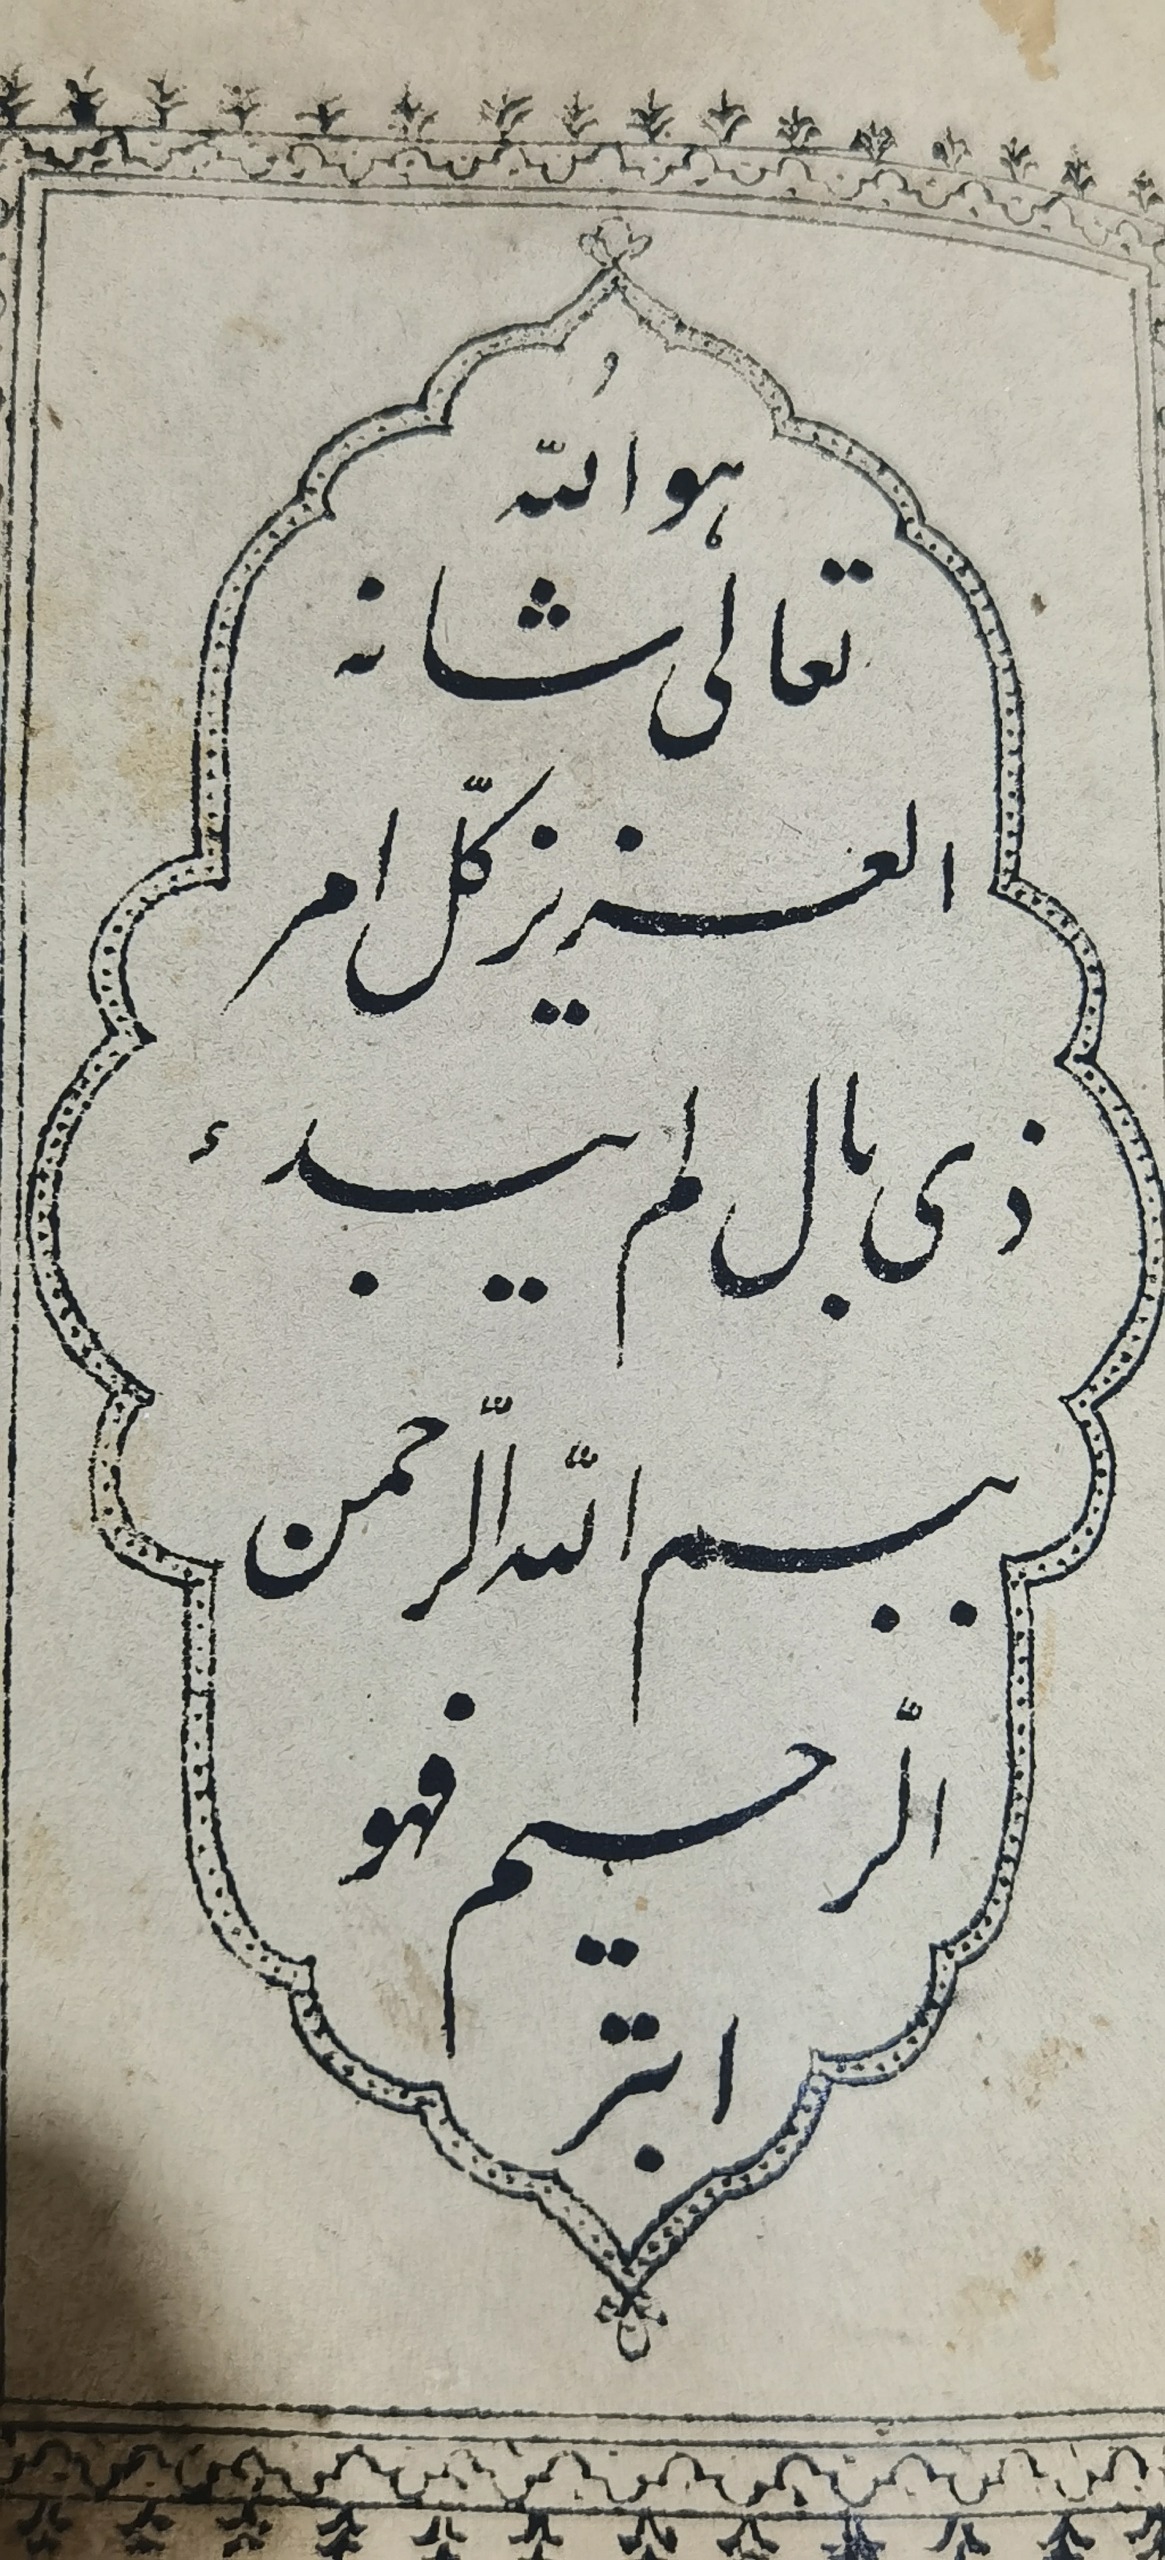 هو اللّه
تعالى شانه
العزيز كلّ امر
ذى بال لم يبدء
ببسم اللّه الرّحمن
الرّحيم فهو
ابتر